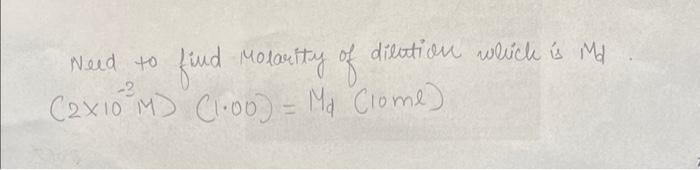 Need to find Molarity of dilution which is Md.
(2×10⁻³M) (1.00) = Md (10ml)